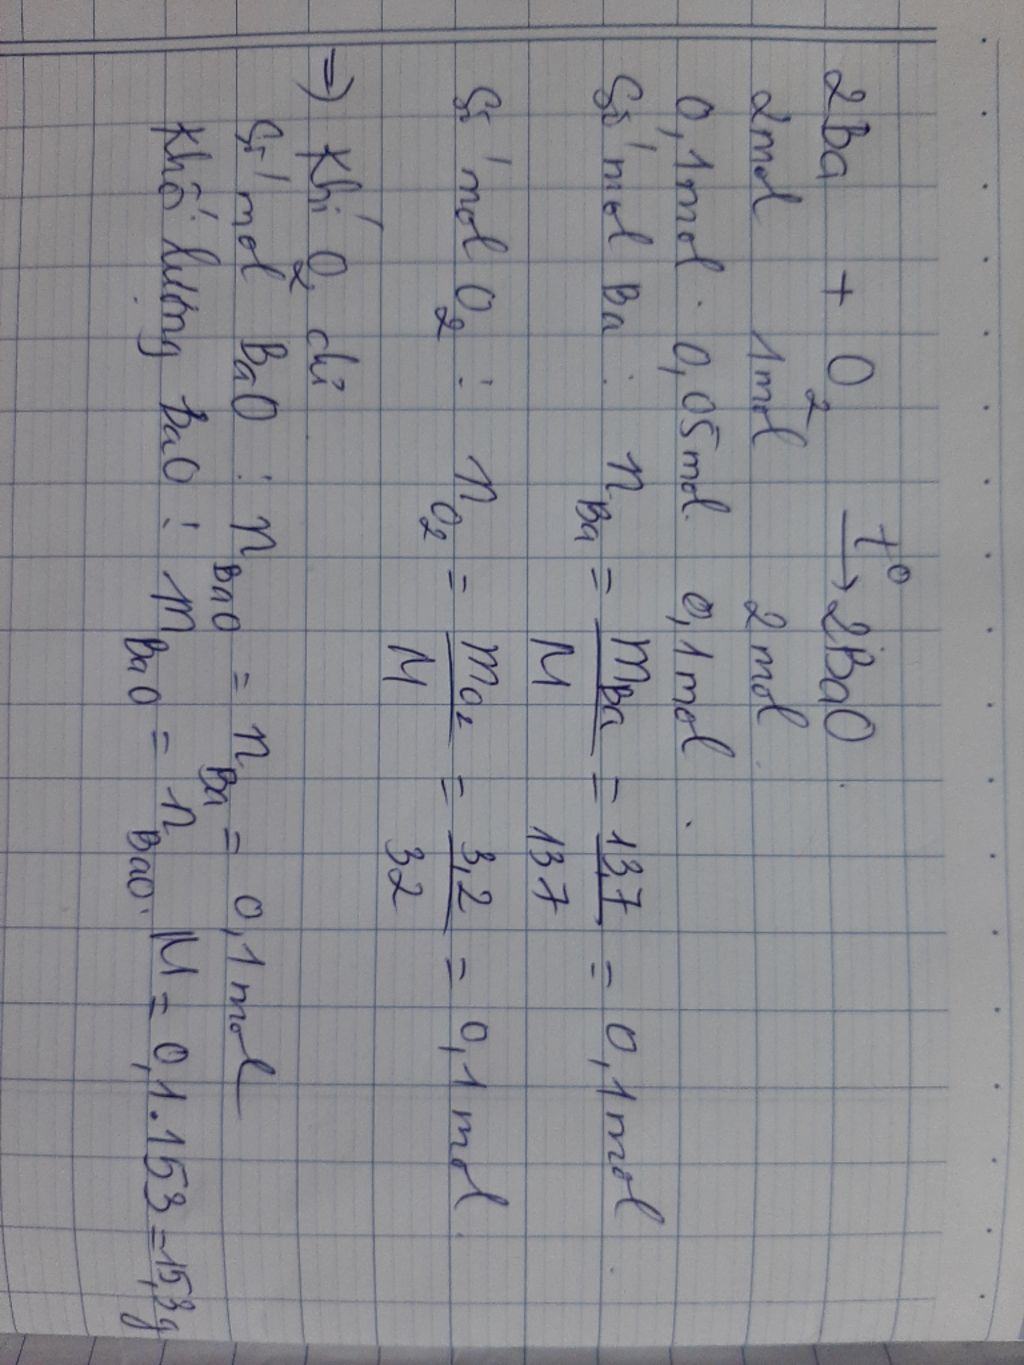 2Ba + O2 t° → 2BaO.
2mol 1mol 2mol.
0,1mol. 0,05mol. 0,1mol.
Số mol Ba : nBa = mBa/M = 13,7/137 = 0,1mol.
Số mol O2 : nO2 = mO2/M = 3,2/32 = 0,1mol.
=> Khí O2 dư.
Số mol BaO : nBaO = nBa = 0,1mol
Khối lượng BaO : mBaO = nBaO. M = 0,1.153 = 15,3g